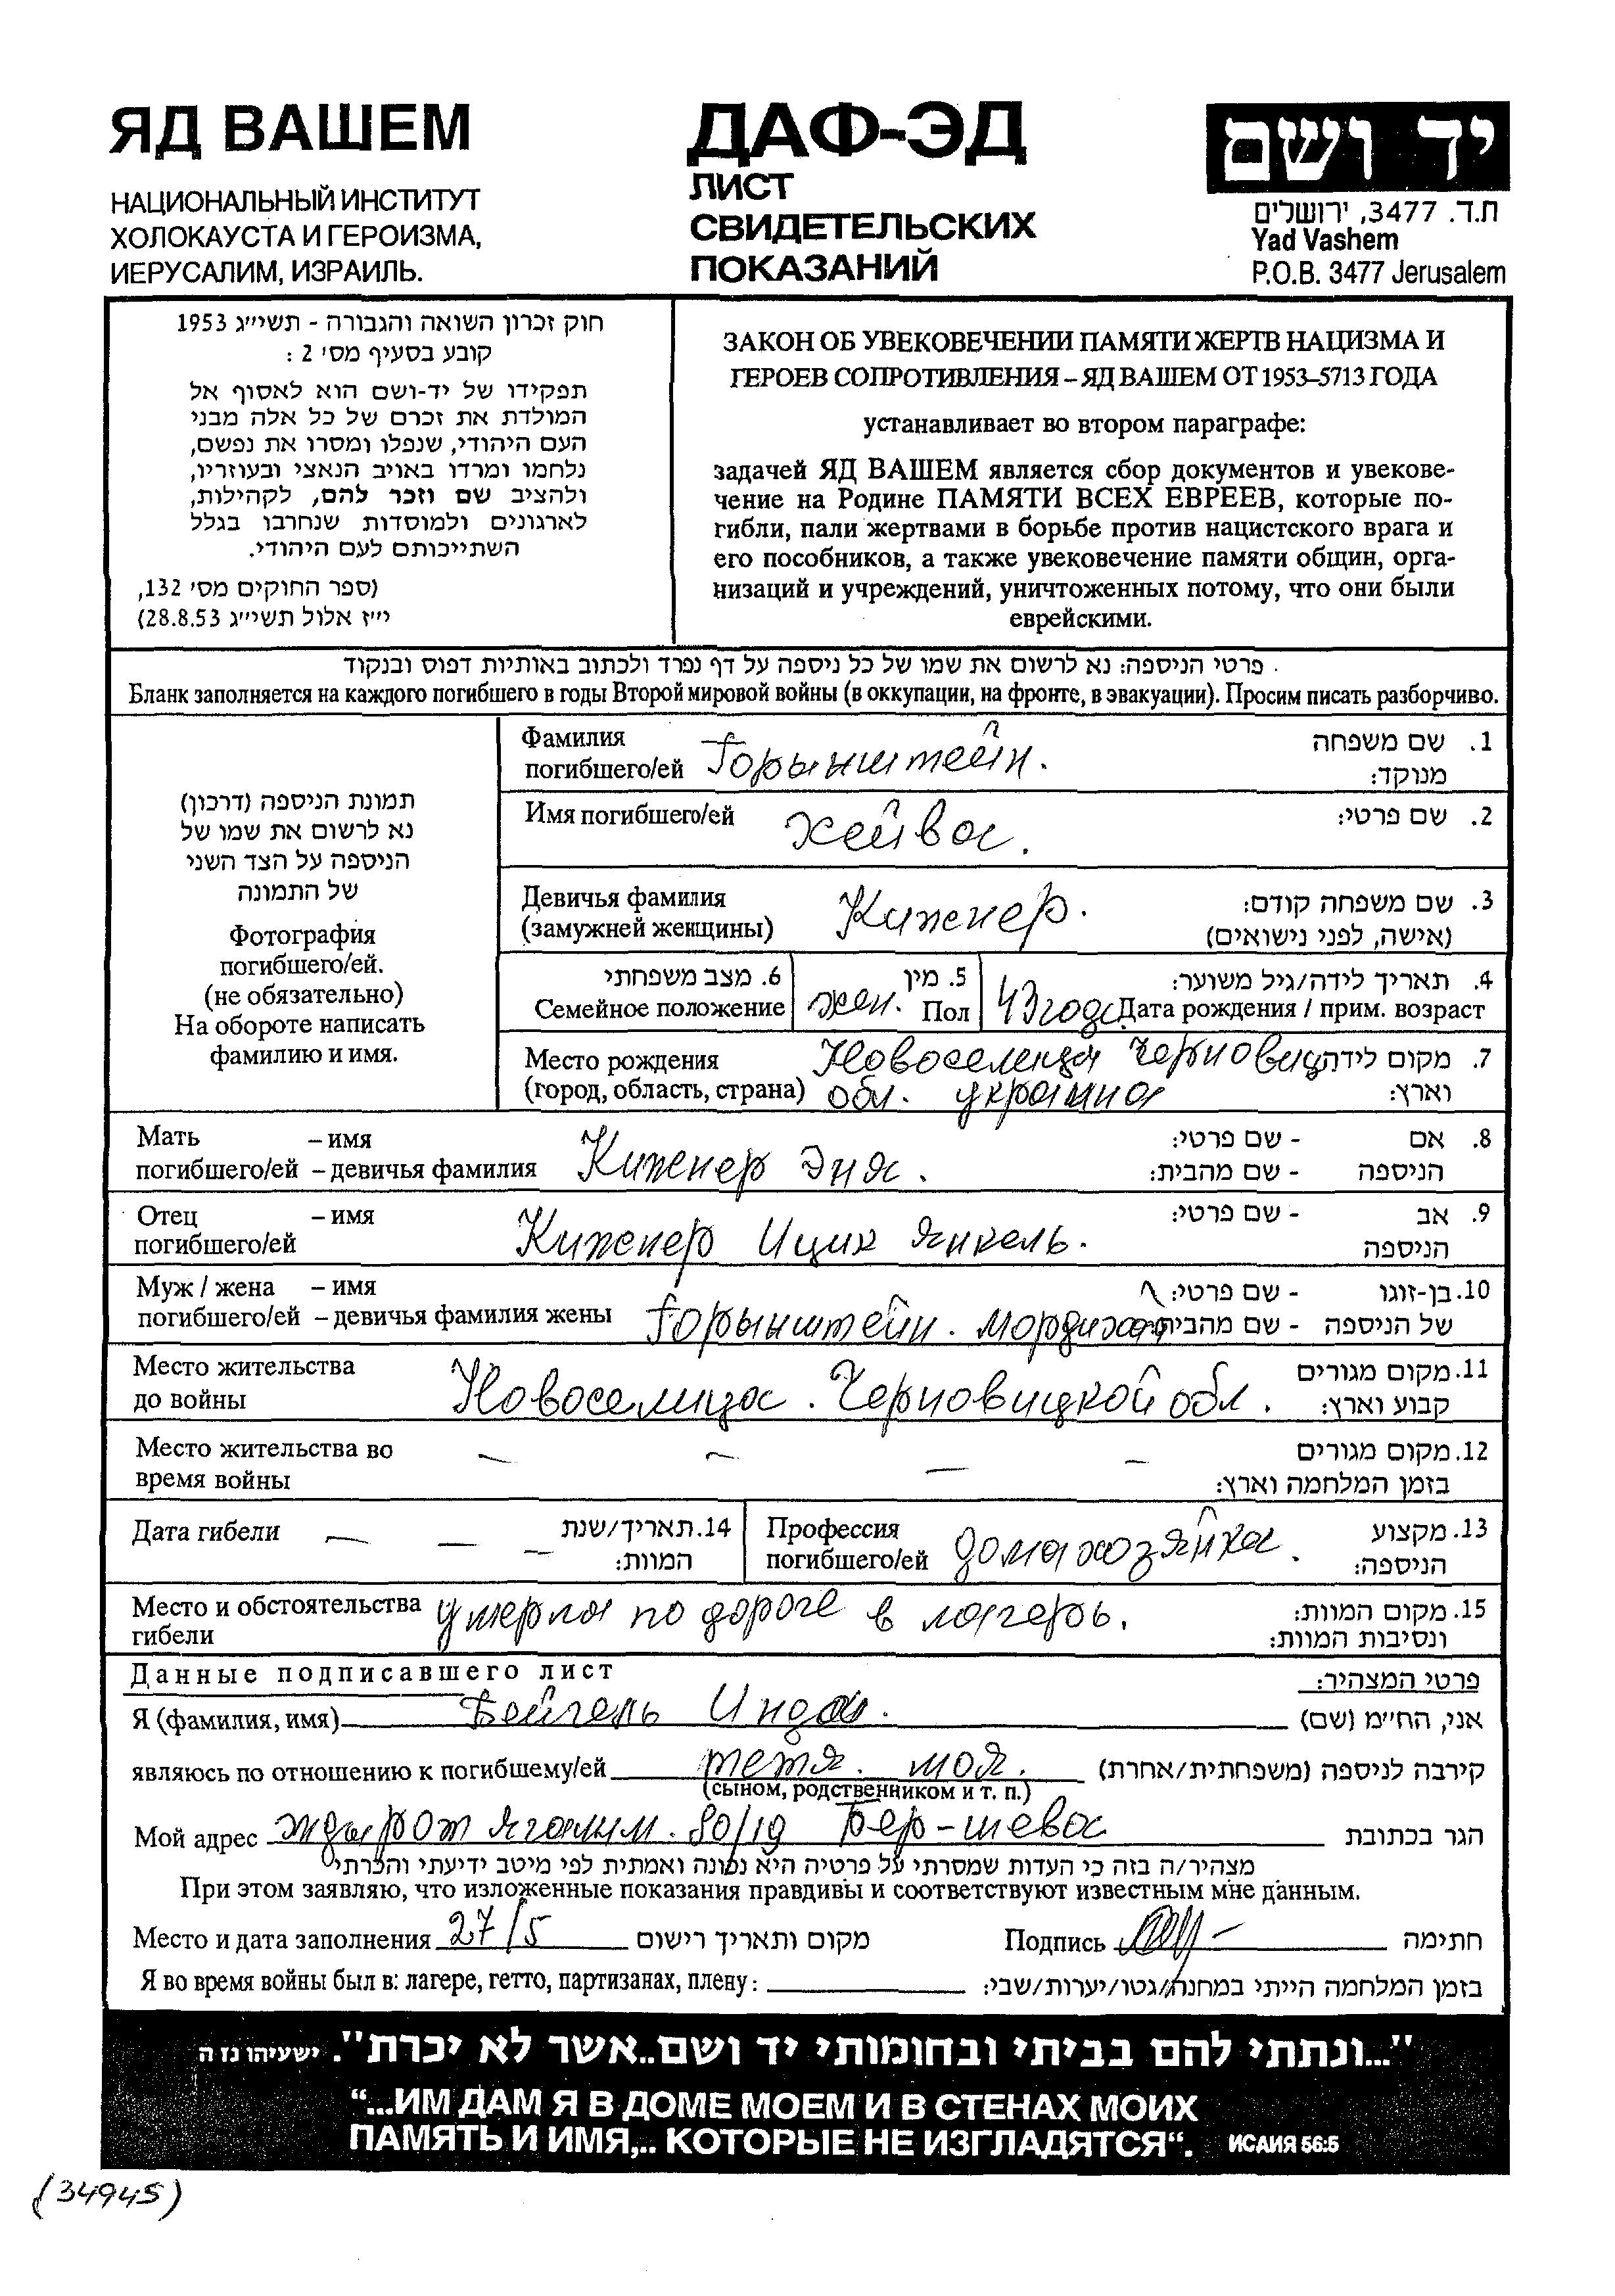 ЯД ВАШЕМ
НАЦИОНАЛЬНЫЙ ИНСТИТУТ
ХОЛОКАУСТА И ГЕРОИЗМА,
ИЕРУСАЛИМ, ИЗРАИЛЬ.
ДАФ-ЭД
ЛИСТ
СВИДЕТЕЛЬСКИХ
ПОКАЗАНИЙ
יד ושם
ת.ד. 3477, ירושלים
Yad Vashem
P.O.B. 3477 Jerusalem
חוק זכרון השואה והגבורה - תשי״ג 1953
קובע בסעיף מס׳ 2 :
תפקידו של יד-ושם הוא לאסוף אל
המולדת את זכרם של כל אלה מבני
העם היהודי, שנפלו ומסרו את נפשם,
נלחמו ומרדו באויב הנאצי ובעוזריו,
ולהציב שם וזכר להם, לקהילות,
לארגונים ולמוסדות שנחרבו בגלל
השתייכותם לעם היהודי.
(ספר החוקים מס׳ 132,
י״ז אלול תשי״ג 28.8.53)
ЗАКОН ОБ УВЕКОВЕЧЕНИИ ПАМЯТИ ЖЕРТВ НАЦИЗМА И
ГЕРОЕВ СОПРОТИВЛЕНИЯ – ЯД ВАШЕМ ОТ 1953–5713 ГОДА
устанавливает во втором параграфе:
задачей ЯД ВАШЕМ является сбор документов и увекове-
чение на Родине ПАМЯТИ ВСЕХ ЕВРЕЕВ, которые по-
гибли, пали жертвами в борьбе против нацистского врага и
его пособников, а также увековечение памяти общин, орга-
низаций и учреждений, уничтоженных потому, что они были
еврейскими.
פרטי הניספה: נא לרשום את שמו של כל ניספה על דף נפרד ולכתוב באותיות דפוס ובנקוד
Бланк заполняется на каждого погибшего в годы Второй мировой войны (в оккупации, на фронте, в эвакуации). Просим писать разборчиво.
תמונת הניספה (דרכון)
נא לרשום את שמו של
הניספה על הצד השני
של התמונה
Фотография
погибшего/ей.
(не обязательно)
На обороте написать
фамилию и имя.
Фамилия
погибшего/ей Горынштейн.
1. שם משפחה
מנוקד:
Имя погибшего/ей Хейва. 2. שם פרטי:
Девичья фамилия
(замужней женщины) Кижнер.
3. שם משפחה קודם:
(אישה, לפני נישואים)
6. מצב משפחתי
Семейное положение
5. מין
жен. Пол
4. תאריך לידה/גיל משוער:
43 года Дата рождения / прим. возраст
Место рождения Новоселица Черновиц 7. מקום לידה
(город, область, страна) обл. украина וארץ:
Мать – имя 8. אם - שם פרטי:
погибшего/ей – девичья фамилия Кижнер Эня. הניספה - שם מהבית:
Отец – имя 9. אב - שם פרטי:
погибшего/ей Кижнер Ицик Янкель. הניספה
Муж / жена – имя 10. בן-זוגו - שם פרטי:
погибшего/ей – девичья фамилия жены Горынштейн. Мордихай של הניספה - שם מהבית:
Место жительства 11. מקום מגורים
до войны Новоселица. Черновицкой обл. קבוע וארץ:
Место жительства во – – – – 12. מקום מגורים
время войны בזמן המלחמה וארץ:
Дата гибели – – – 14. תאריך/שנת
המוות:
Профессия 13. מקצוע
погибшего/ей домахозяйка. הניספה:
Место и обстоятельства умерла по дороге в лагерь. 15. מקום המוות:
гибели ונסיבות המוות:
Данные подписавшего лист פרטי המצהיר:
Я (фамилия, имя) Бейгель Инда. אני, הח״מ (שם)
являюсь по отношению к погибшему/ей тетя. моя. קירבה לניספה (משפחתית/אחרת)
(сыном, родственником и т. п.)
Мой адрес ждырот ягалим. 80/19 Бер-шева הגר בכתובת
מצהיר/ה בזה כי העדות שמסרתי על פרטיה היא נכונה ואמתית לפי מיטב ידיעתי והכרתי
При этом заявляю, что изложенные показания правдивы и соответствуют известным мне данным.
Место и дата заполнения 27/5 מקום ותאריך רישום Подпись חתימה
Я во время войны был в: лагере, гетто, партизанах, плену: בזמן המלחמה הייתי במחנה/גטו/יערות/שבי:
"...ונתתי להם בביתי ובחומותי יד ושם..אשר לא יכרת". ישעיהו נז ה
“...ИМ ДАМ Я В ДОМЕ МОЕМ И В СТЕНАХ МОИХ
ПАМЯТЬ И ИМЯ,.. КОТОРЫЕ НЕ ИЗГЛАДЯТСЯ“. ИСАИЯ 56:5
(34945)